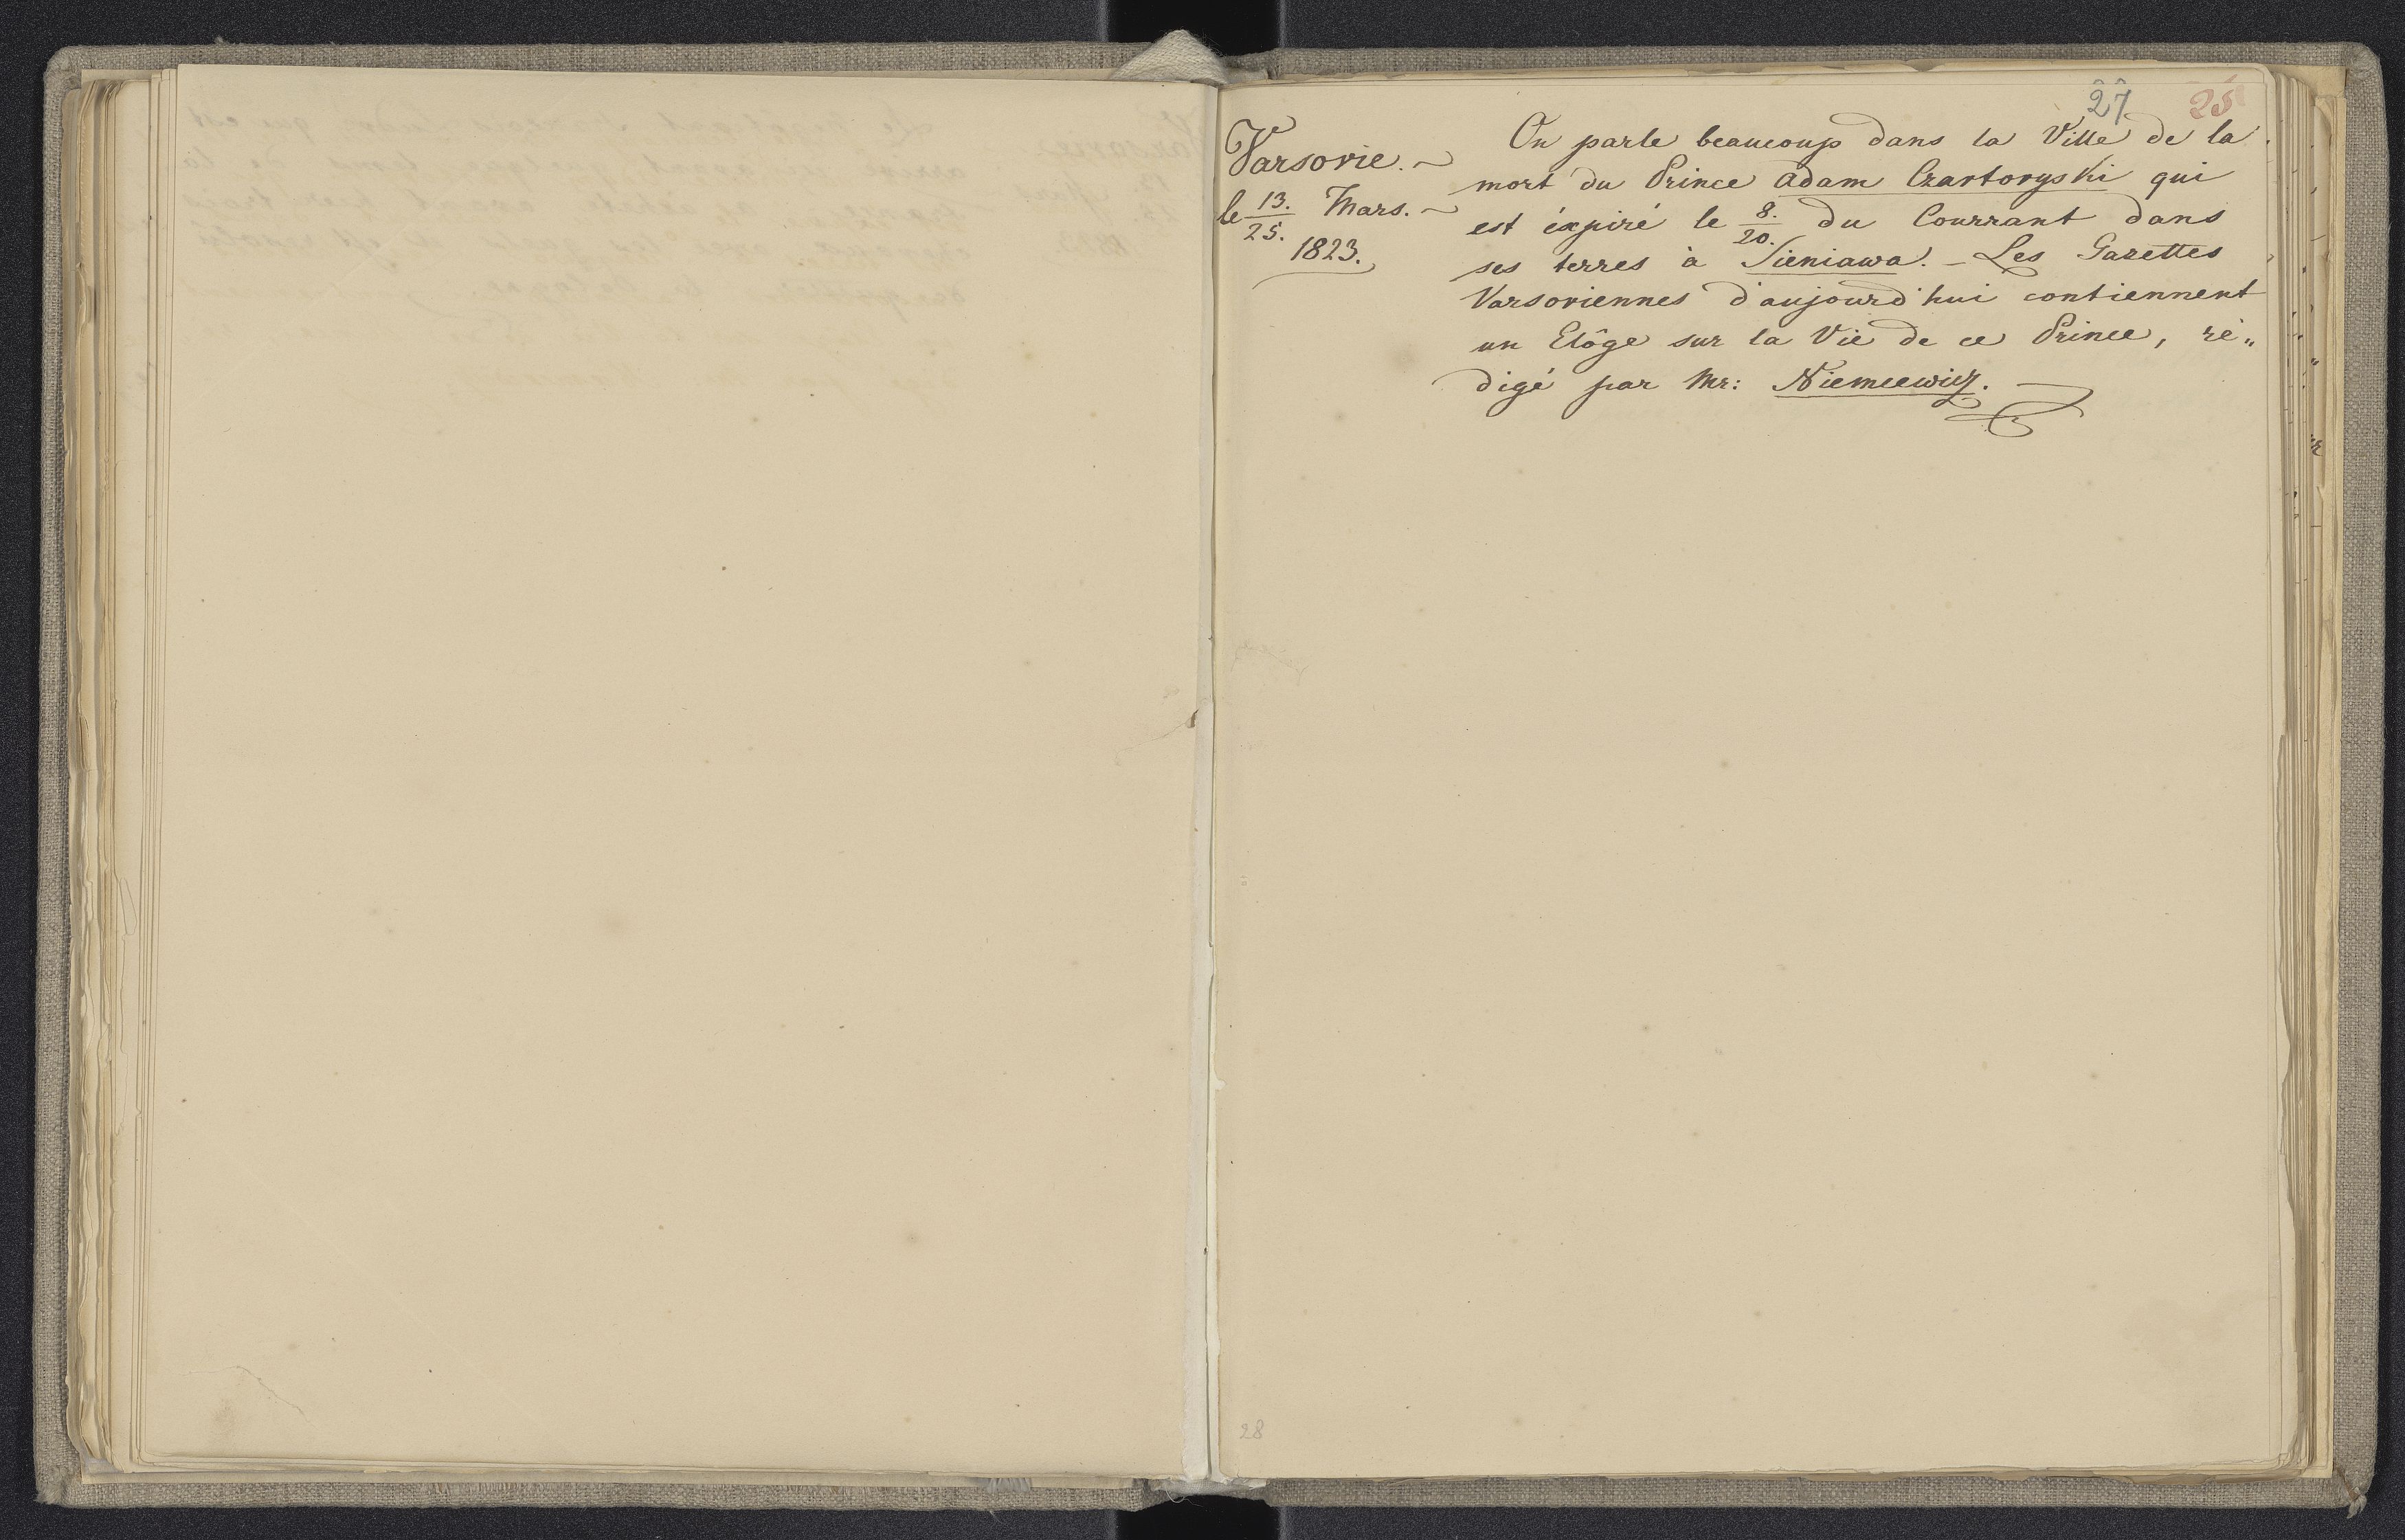 27. 25
Varsovie. ~
le 13./25. Mars. ~
1823.
On parle beaucoup dans la Ville de la
mort du Prince Adam Czartoryski qui
est éxpiré le 8./20. du Courrant dans
ses terres à Sieniawa. – Les Gazettes
Varsoviennes d'aujourd'hui contiennent
un Elôge sur la Vie de ce Prince, ré„
digé par Mr: Niemcewicz. —
28